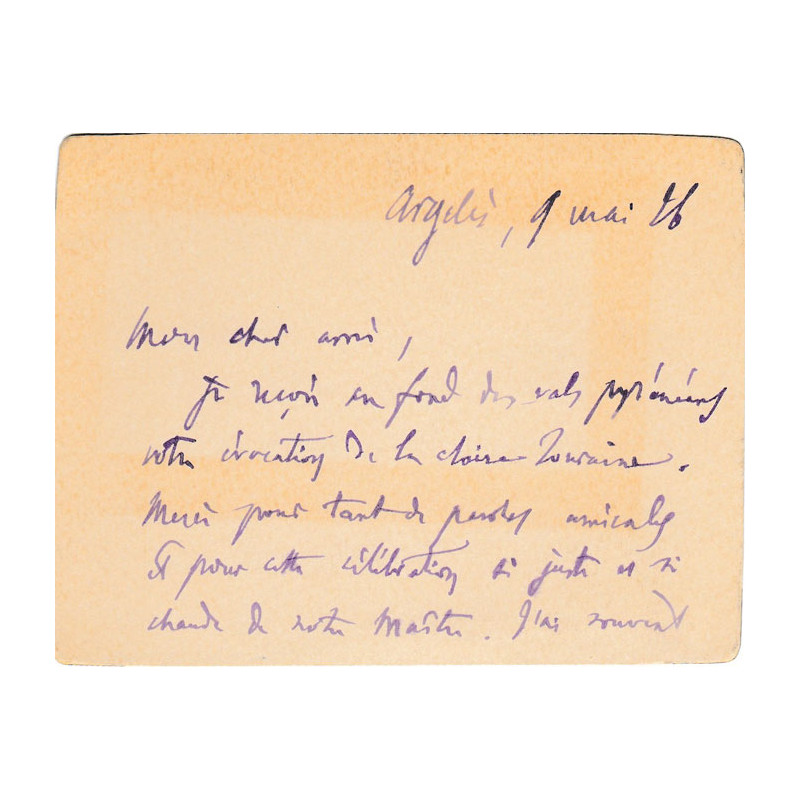 Argelès, 9 mai 26
Mon cher ami,
Je reçois au fond des vals pyrénéens
votre évocation de la claire Touraine.
Merci pour tant de paroles amicales
et pour cette célébration si juste et si
chaude de notre Maître. J'ai souvent